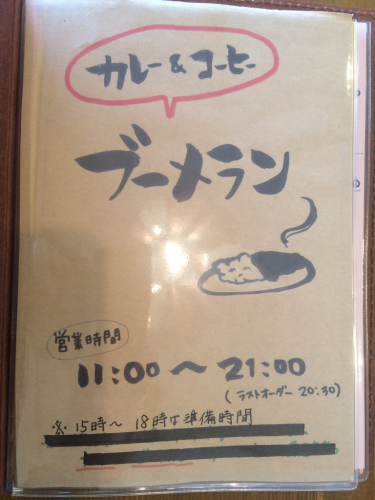 カレー&コーヒー
ブーメラン
営業時間
11:00〜21:00
(ラストオーダー 20:30)
※15時〜18時は準備時間